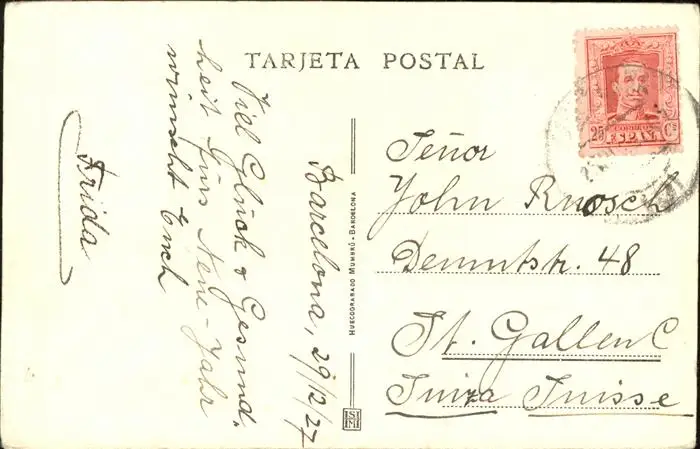 TARJETA POSTAL
Barcelona, 29/12/27
Viel Glück & Gesund-
heit fürs Neue-Jahr
wünscht Euch
Frida
HUECOGRABADO MUMBRÚ - BARCELONA
Señor
John Ruosch
Demutstr. 48
St. Gallen C
Suiza Suisse
CORREOS
25 Cs
ESPAÑA